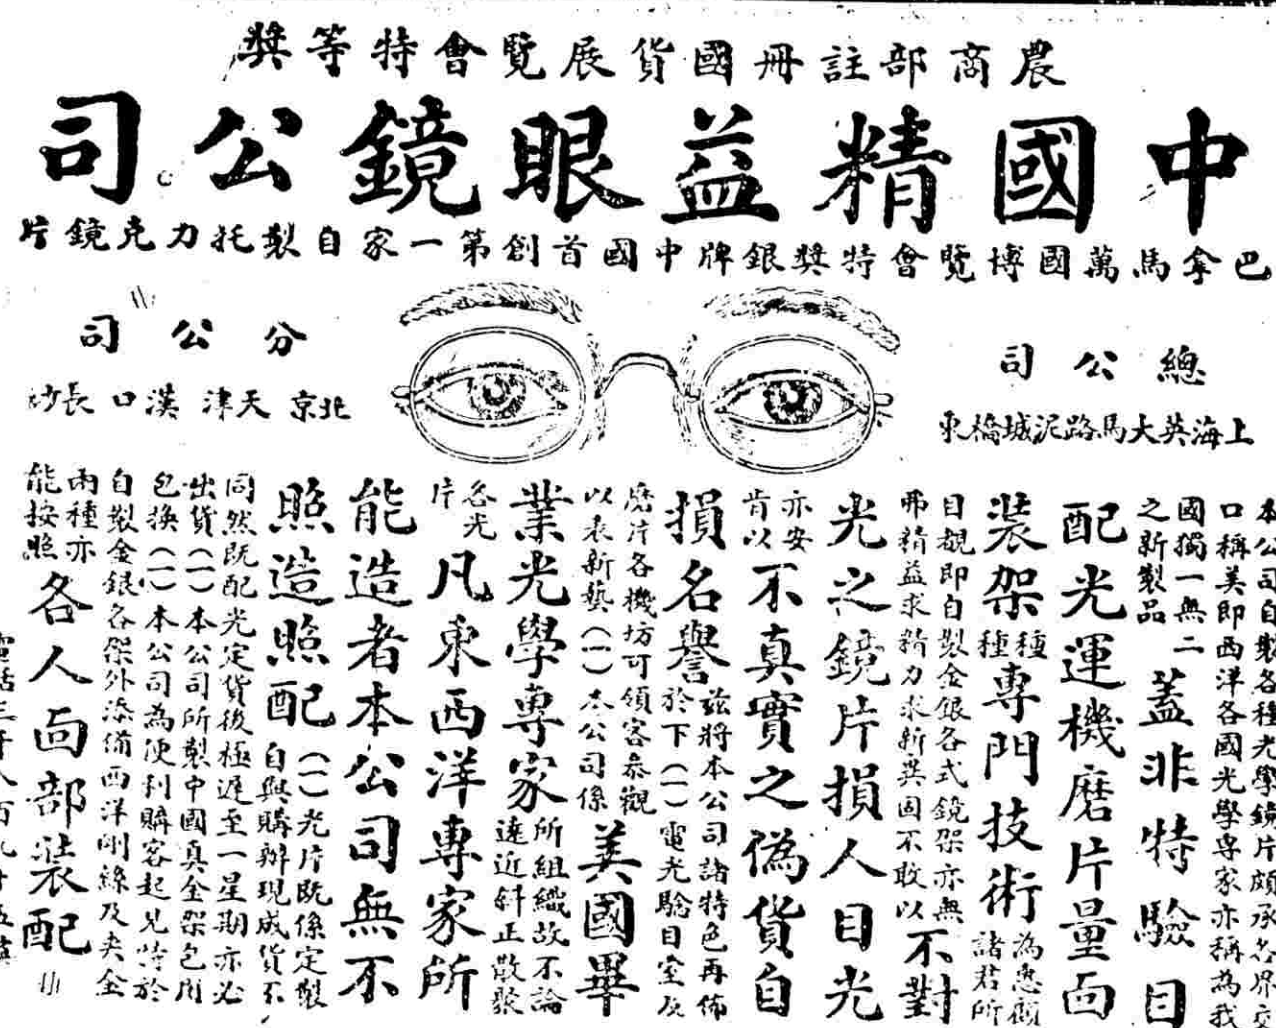 農商部註冊國貨展覽會特等獎
中國精益眼鏡公司
巴拿馬萬國博覽會特獎銀牌中國首創第一家自製托力克鏡片
總公司
上海英大馬路泥城橋東
分公司
北京 天津 漢口 長沙
本公司自製各種光學鏡片頗承各界交
口稱美即西洋各國光學專家亦稱為我
國獨一無二
之新製品
蓋非特驗目
配光運機磨片量面
裝架
種種
專門技術
為惠顧
諸君所
目覩即自製金銀各式鏡架亦無
弗精益求精力求新異固不敢以
不對
光之鏡片損人目光
亦安
肯以
不真實之偽貨自
損名譽
茲將本公司諸特色再佈
於下(一)電光驗目室及
磨片各機坊可領客參觀
以表新藝(一)本公司係
美國畢
業光學專家
所組織故不論
遠近斜正散聚
各光
片
凡東西洋專家所
能造者本公司無不
照造照配
(一)光片既係定製
自與購辦現成貨不
同然既配光定貨後極遲至一星期亦必
出貨(一)本公司所製中國真金架包用
包換(一)本公司為便利購客起見特於
自製金銀各架外添備西洋剛絲及夾金
兩種亦
能按照
各人面部裝配